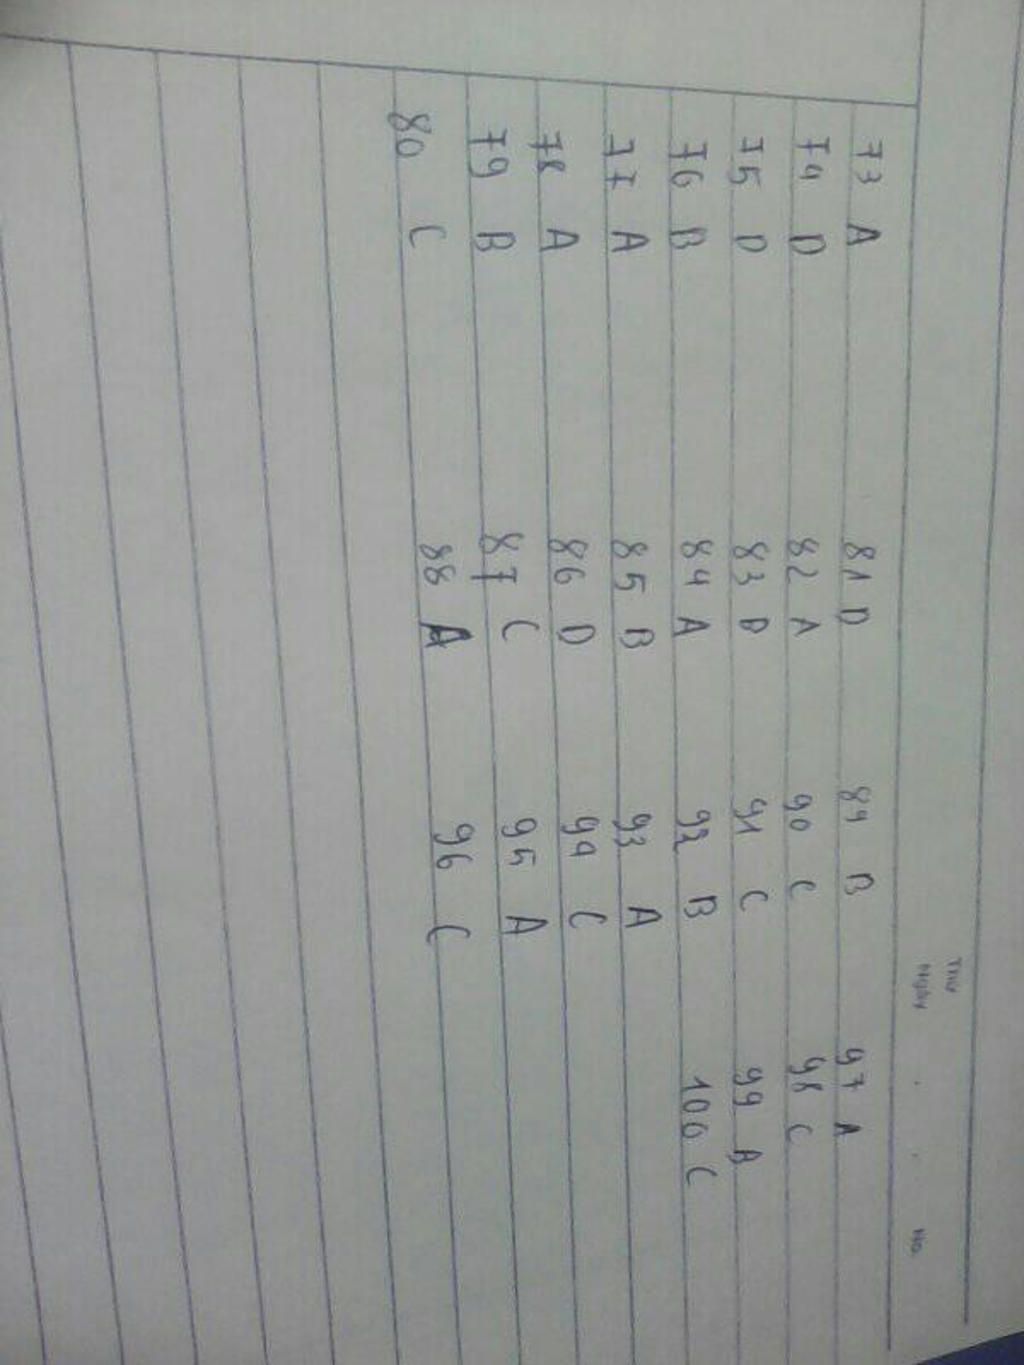 Thứ
Ngày . . No.
73 A 81 D 89 B 97 A
74 D 82 A 90 C 98 C
75 D 83 D 91 C 99
76 B 84 A 92 B 100 C
77 A 85 B 93 A
78 A 86 D 94 C
79 B 87 C 95 A
80 C 88 A 96 C